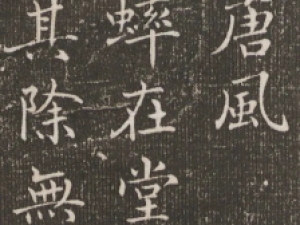 唐風
蟀在堂
其除無